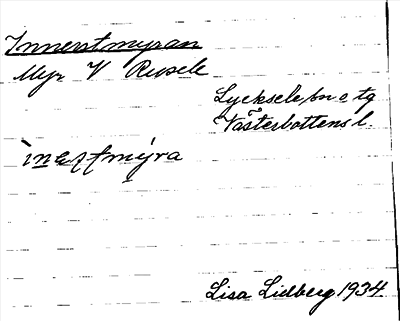 Innerstmyran
Myr V Rusele
Lycksele, sn o tg
Västerbottens l.
Lisa Lidberg 1934